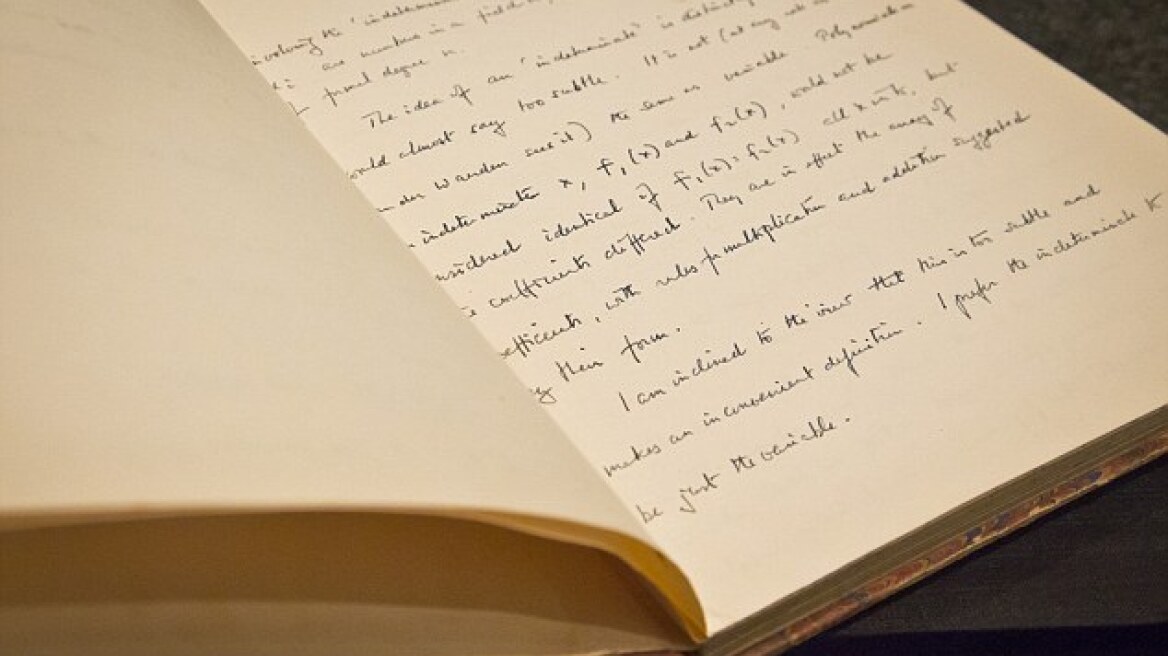 involving the 'indeterminate
are numbers in a field
formal degree n.
The idea of an 'indeterminate' is distinctly
would almost say too subtle. It is not (at any rate as
der Waerden sees it) the same as variable. Polynomials in
indeterminate x, f₁(x) and f₂(x), would not be
nsidered identical if f₁(x) = f₂(x) all x in k, but
coefficients differed. They are in effect the array of
efficients, with rules for multiplication and addition suggested
by their form.
I am inclined to the view that this is too subtle and
makes an inconvenient definition. I prefer the indeterminate k
be just the variable.